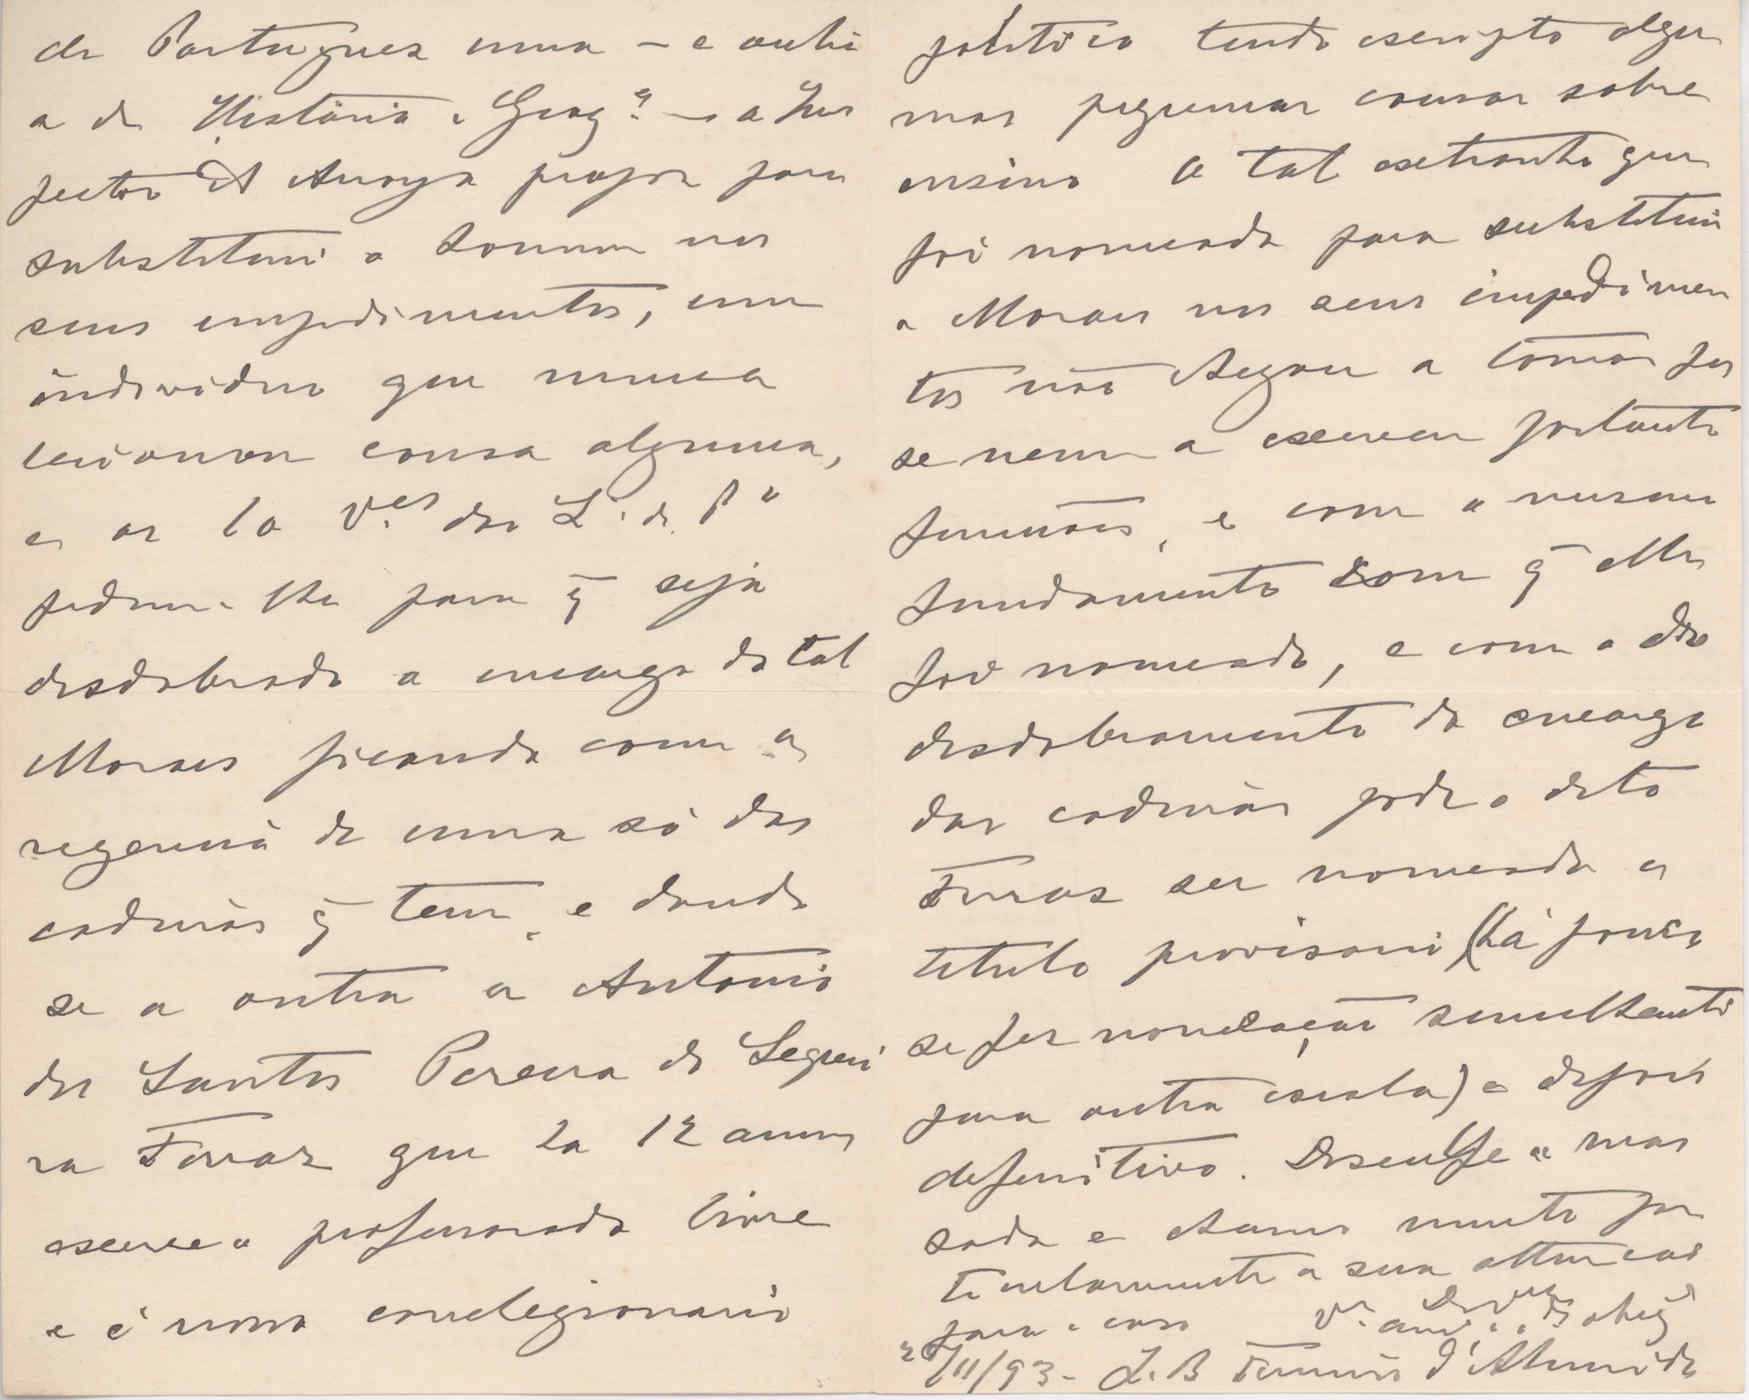 de Portuguez uma – e outr
a de Historia e Geog.ª – o Ins
pector d'A propor para
substituir o nos
seus impedimentos, um
individuo que nunca
leccionou cousa alguma,
e os 10 V.es da L. de P.ª
pedem-lhe para q̃ seja
desdobrado o encargo do tal
Moraes ficando com a
regencia de uma só das
cadeiras q̃ tem, e dando
se a outra a Antonio
dos Santos Pereira de Sequei
ra Ferraz que ha 12 annos
exerce o professorado livre
e é nosso correlegionario
politico tendo escripto algu
mas pequenas cousas sobre
ensino O tal extranho que
foi nomeado para substituir
o Moraes nos seus impedimen
tos não chegou a tomar pos
se nem a exercer portanto
funcções, e com o mesmo
fundamento com q̃ elle
foi nomeado, e com o do
desdobramento do encargo
das cadeiras pode o dito
Ferraz ser nomeado a
titulo provisorio (há pouco
se fez nomeação semelhante
para outra escola) e depois
definitivo. Desculpe a mas
sada e chamo muito par
ticularmente a sua attenção
para o caso V.
2 /11/93 – J. B Ferreira d'Almeida